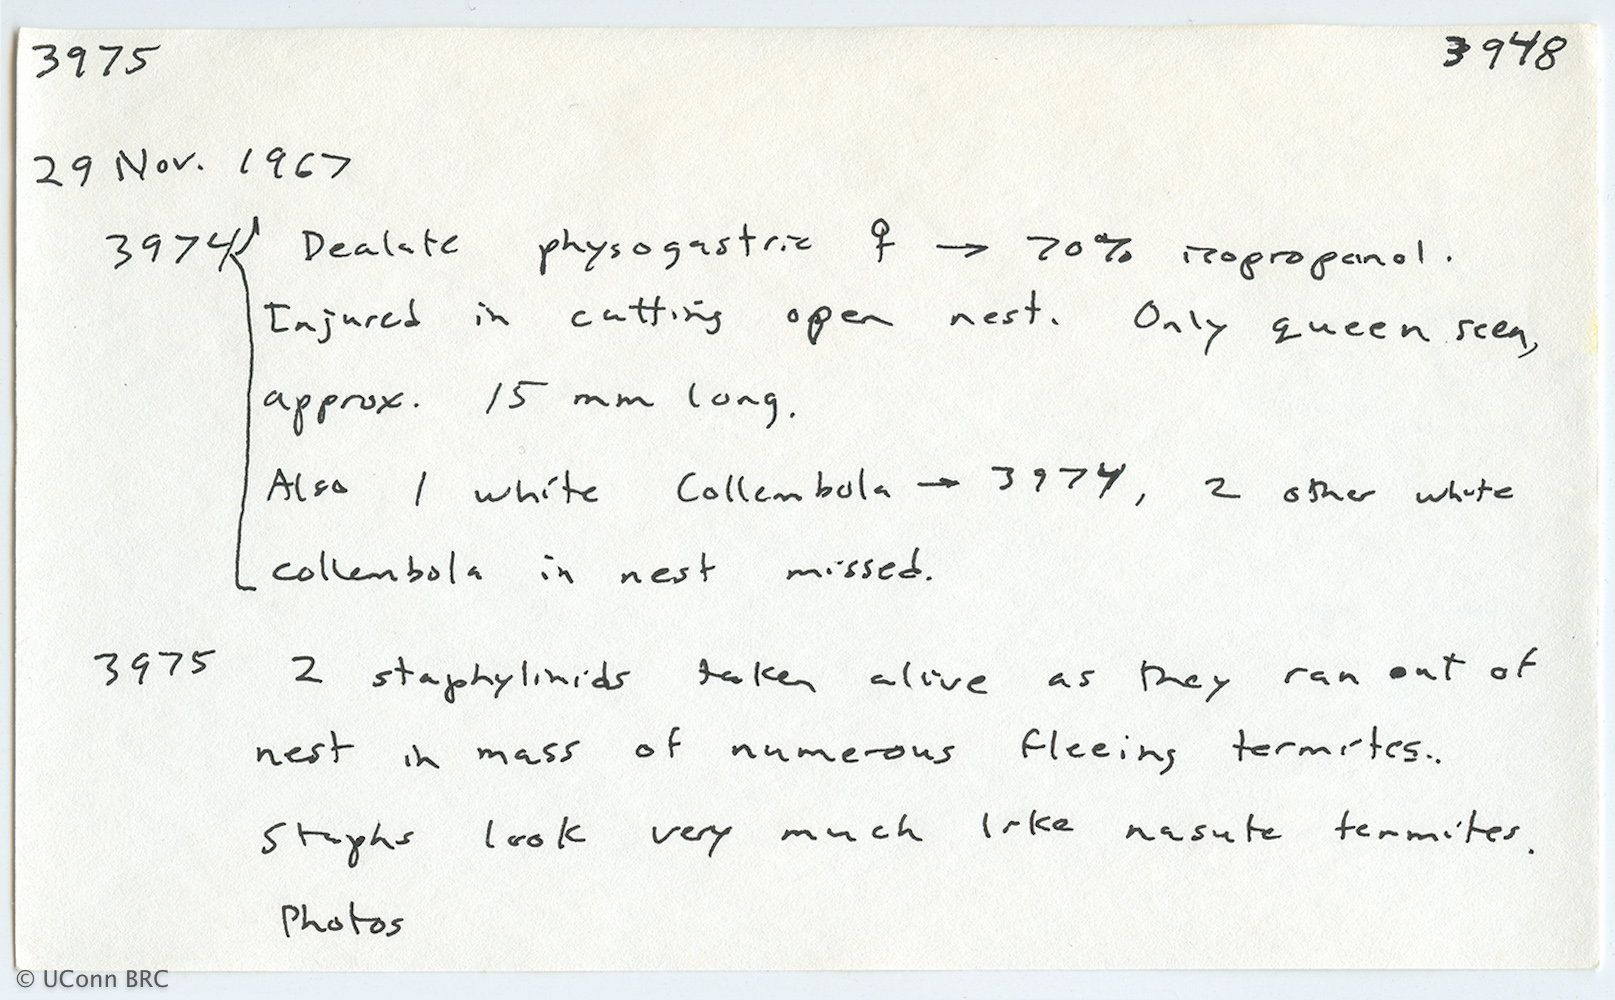 3975 3948
29 Nov. 1967
3974 Dealate physogastric ♀ → 70% isopropanol.
Injured in cutting open nest. Only queen seen,
approx. 15 mm long.
Also 1 white Collembola → 3974, 2 other white
collembola in nest missed.
3975 2 staphylinids taken alive as they ran out of
nest in mass of numerous fleeing termites.
Staphs look very much like nasute termites.
Photos
© UConn BRC